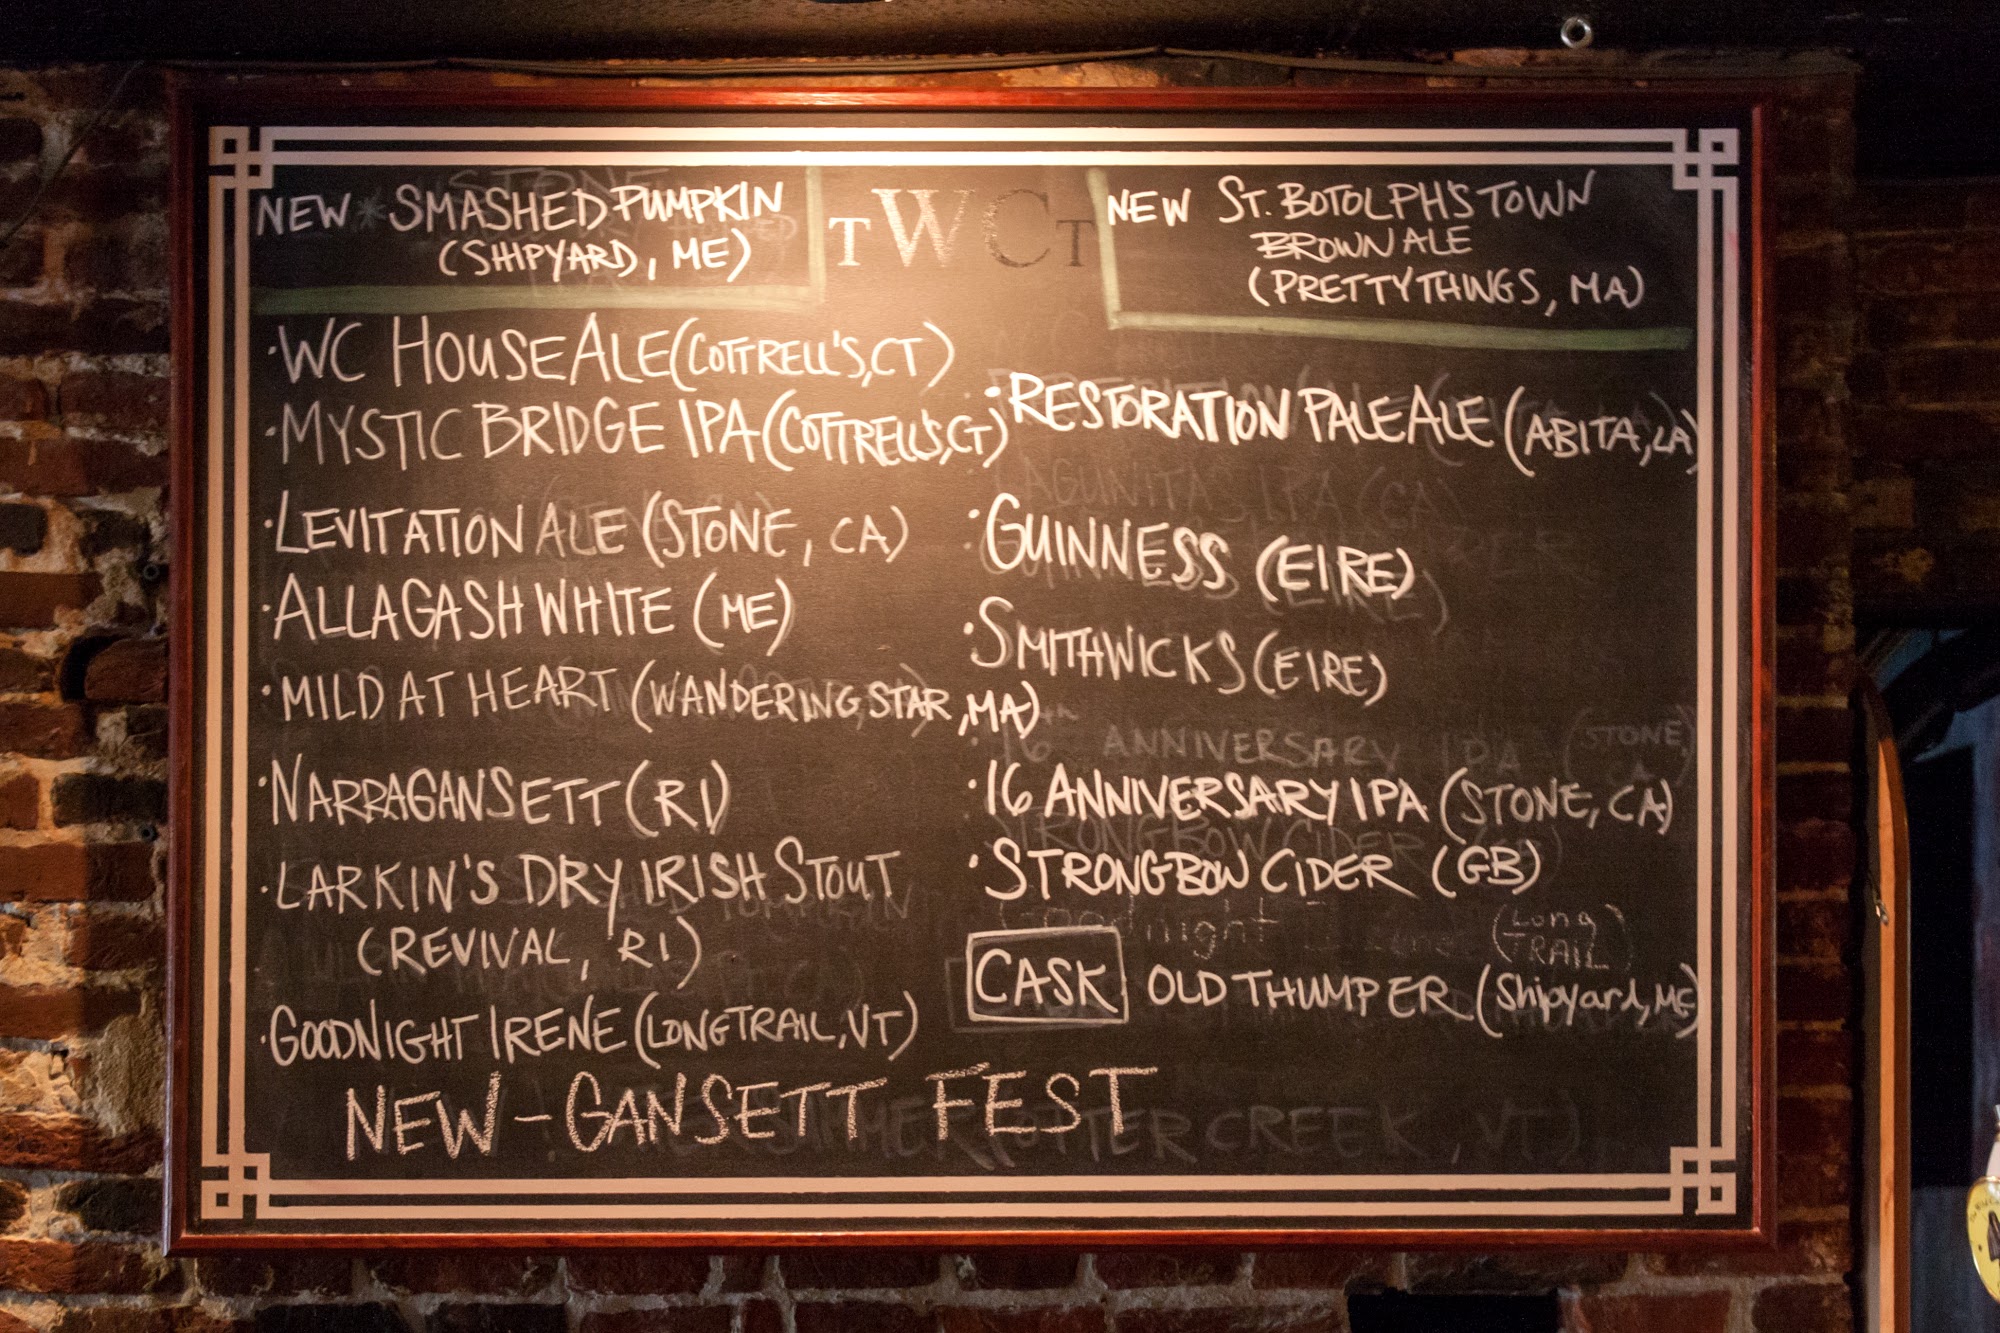 NEW * SMASHED PUMPKIN
(SHIPYARD, ME)
TWCT
NEW ST. BOTOLPH'S TOWN
BROWN ALE
(PRETTY THINGS, MA)
·WC HOUSE ALE (COTTRELL'S, CT)
·MYSTIC BRIDGE IPA (COTTRELL'S, CT)
·LEVITATION ALE (STONE, CA)
·ALLAGASH WHITE (ME)
·MILD AT HEART (WANDERING STAR, MA)
·NARRAGANSETT (RI)
·LARKIN'S DRY IRISH STOUT
(REVIVAL, RI)
·GOODNIGHT IRENE (LONG TRAIL, VT)
·RESTORATION PALE ALE (ABITA, LA)
LAGUNITAS IPA (CA)
·GUINNESS (EIRE)
·SMITHWICKS (EIRE)
16th ANNIVERSARY IPA (STONE, CA)
·16 ANNIVERSARY IPA (STONE, CA)
STRONGBOW CIDER
·STRONGBOW CIDER (GB)
Goodnight Irene (Long TRAIL)
CASK OLD THUMPER (Shipyard, ME)
NEW - GANSETT FEST
SUMMER (OTTER CREEK, VT)